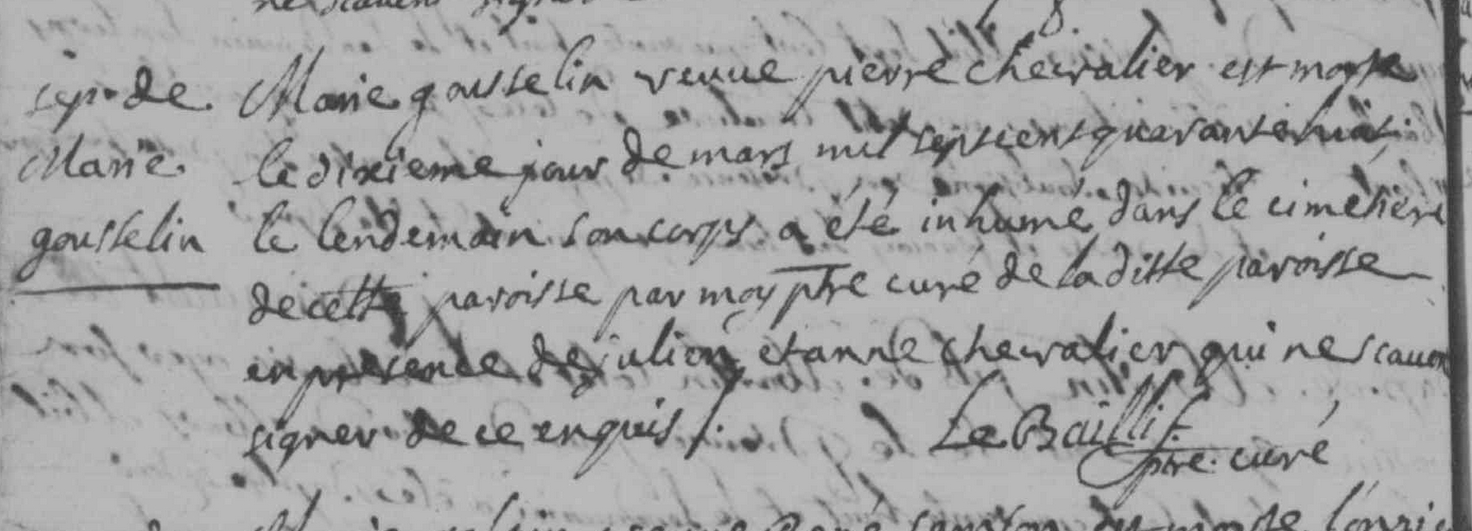 ne scavent signer
sep. de
Marie
gousselin
Marie gousselin veuue pierre chevalier est morte
le dixieme jour de mars mil sept cent quarante huit
le lendemain son corps a été inhumé dans le cimetiere
de cette paroisse par moy ptre curé de laditte paroisse
en presence de julien et anne chevalier qui ne scauent
signer de ce enquis /.
Le Baillif
ptre. curé
René est morte